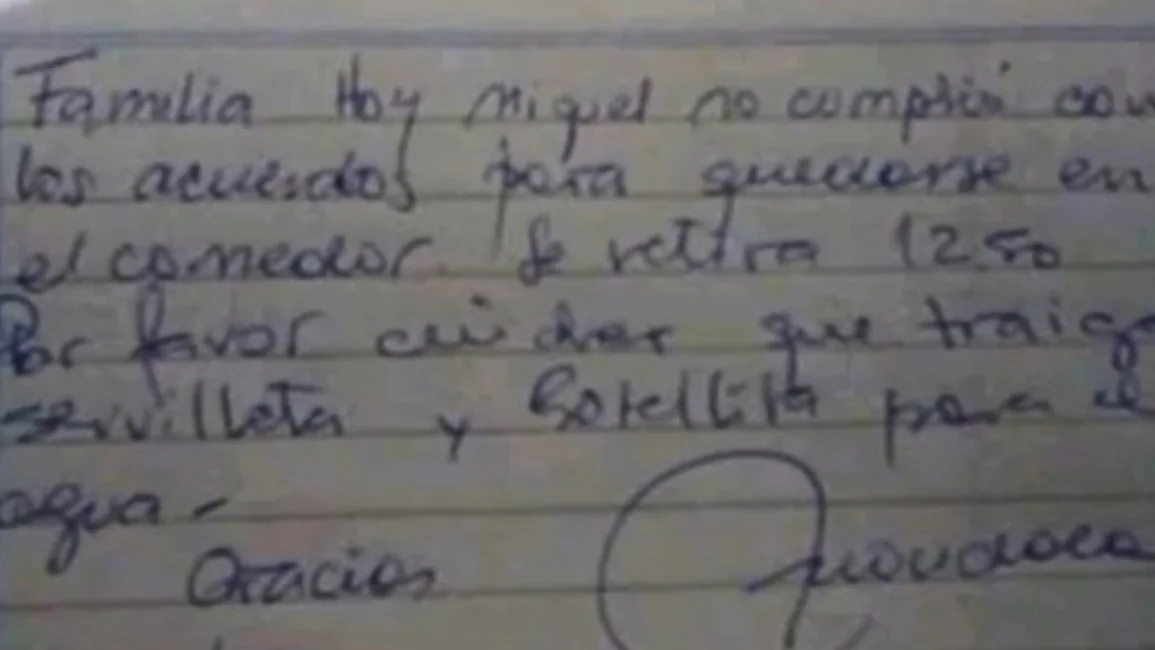 Familia Hoy Miguel no cumplió con
los acuerdos para quedarse en
el comedor. Se retira 12.50
Por favor cuidar que traiga
servilleta y botellita para el
agua.-
Gracias